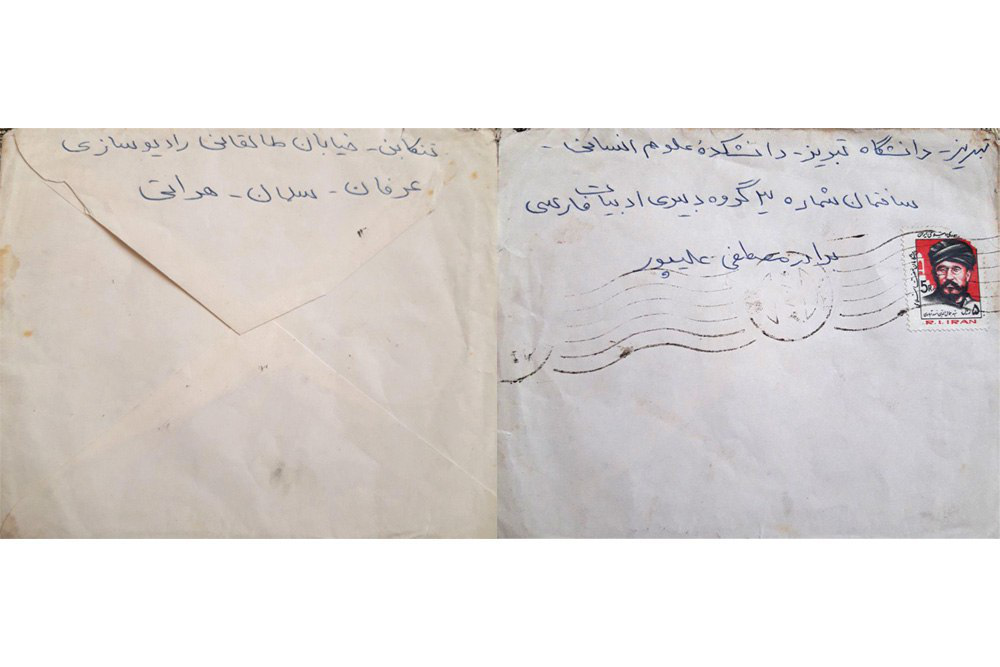 تنکابن - خیابان طالقانی رادیوسازی
عرفان - سلمان - هراتی
تبریز - دانشگاه تبریز - دانشکدهٔ علوم انسانی -
ساختمان شماره ۳ گروه دبیری ادبیات فارسی
برادر مصطفی علیپور
5
۵
R.I.IRAN